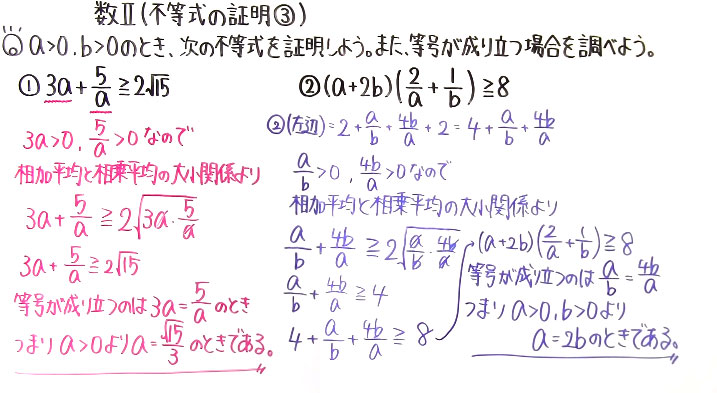 数Ⅱ(不等式の証明③)
Q a>0, b>0のとき、次の不等式を証明しよう。また、等号が成り立つ場合を調べよう。
① 3a+5/a≧2√15
3a>0, 5/a>0なので
相加平均と相乗平均の大小関係より
3a+5/a≧2√(3a・5/a)
3a+5/a≧2√15
等号が成り立つのは3a=5/aのとき
つまりa>0よりa=√15/3のときである。
②(a+2b)(2/a+1/b)≧8
②(左辺)=2+a/b+4b/a+2=4+a/b+4b/a
a/b>0, 4b/a>0なので
相加平均と相乗平均の大小関係より
a/b+4b/a≧2√(a/b・4b/a)
a/b+4b/a≧4
4+a/b+4b/a≧8
(a+2b)(2/a+1/b)≧8
等号が成り立つのはa/b=4b/a
つまりa>0, b>0より
a=2bのときである。